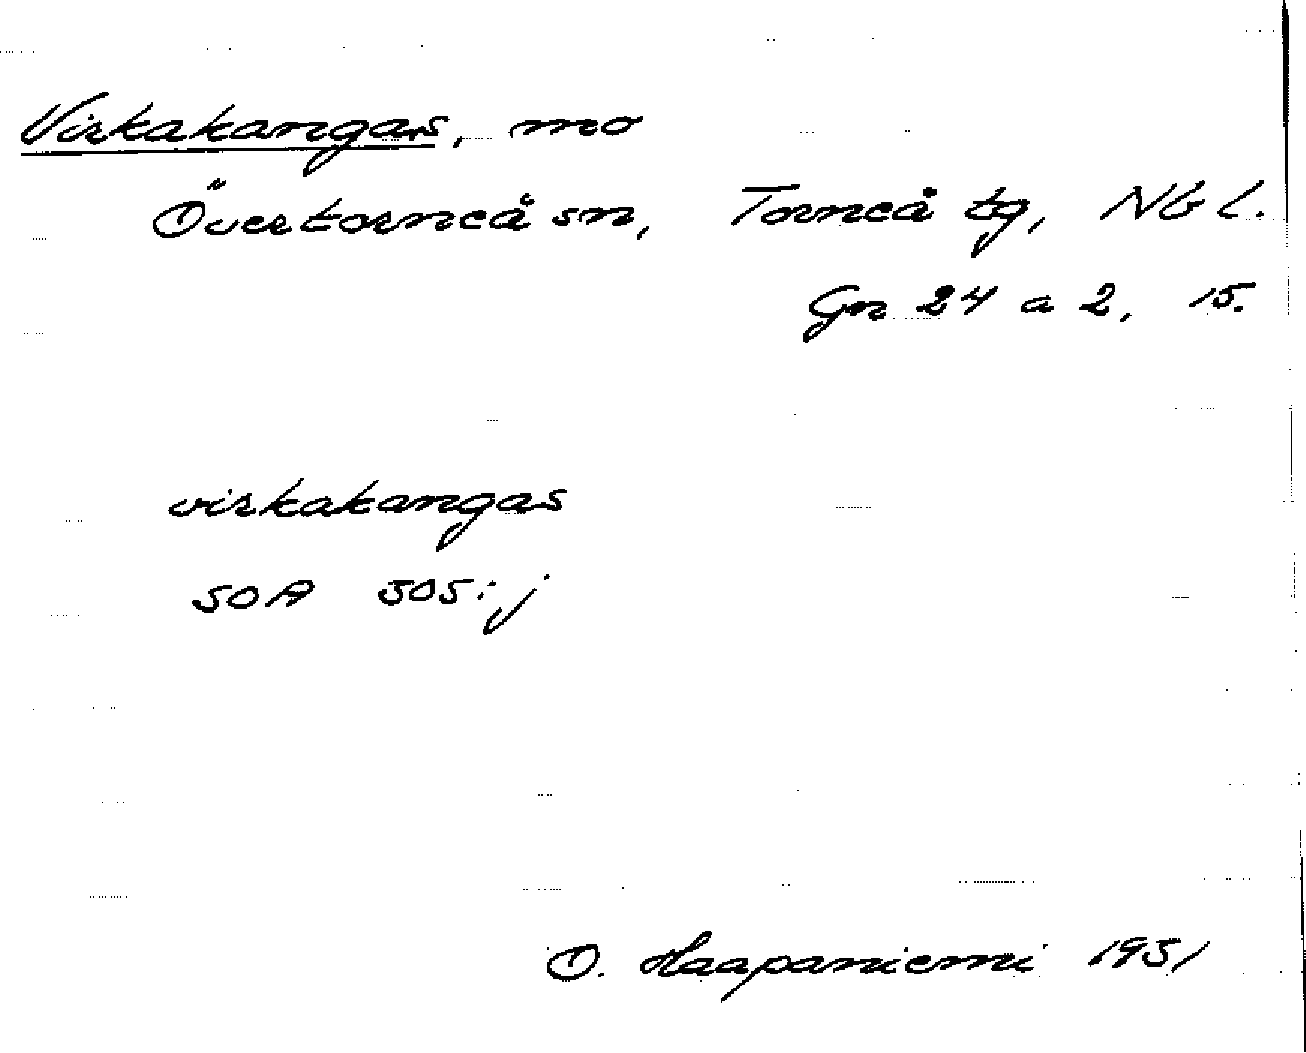 Virkakangas, mo
Övertorneå sn, Torneå tg, NB l.
Gn 24 a 2, 15.
virkakangas
SOA 305:j
O. Haapaniemi 1931